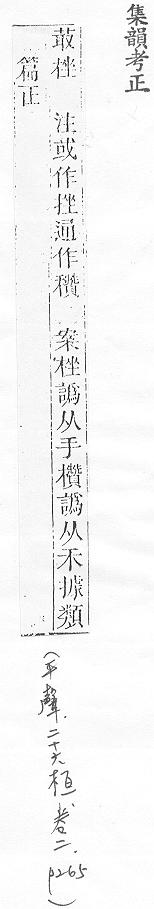 集韻考正
菆㭫　注或作挫通作穳　案㭫譌从手欑譌从禾據類
篇正
(平聲.二十六桓.卷二.p265)